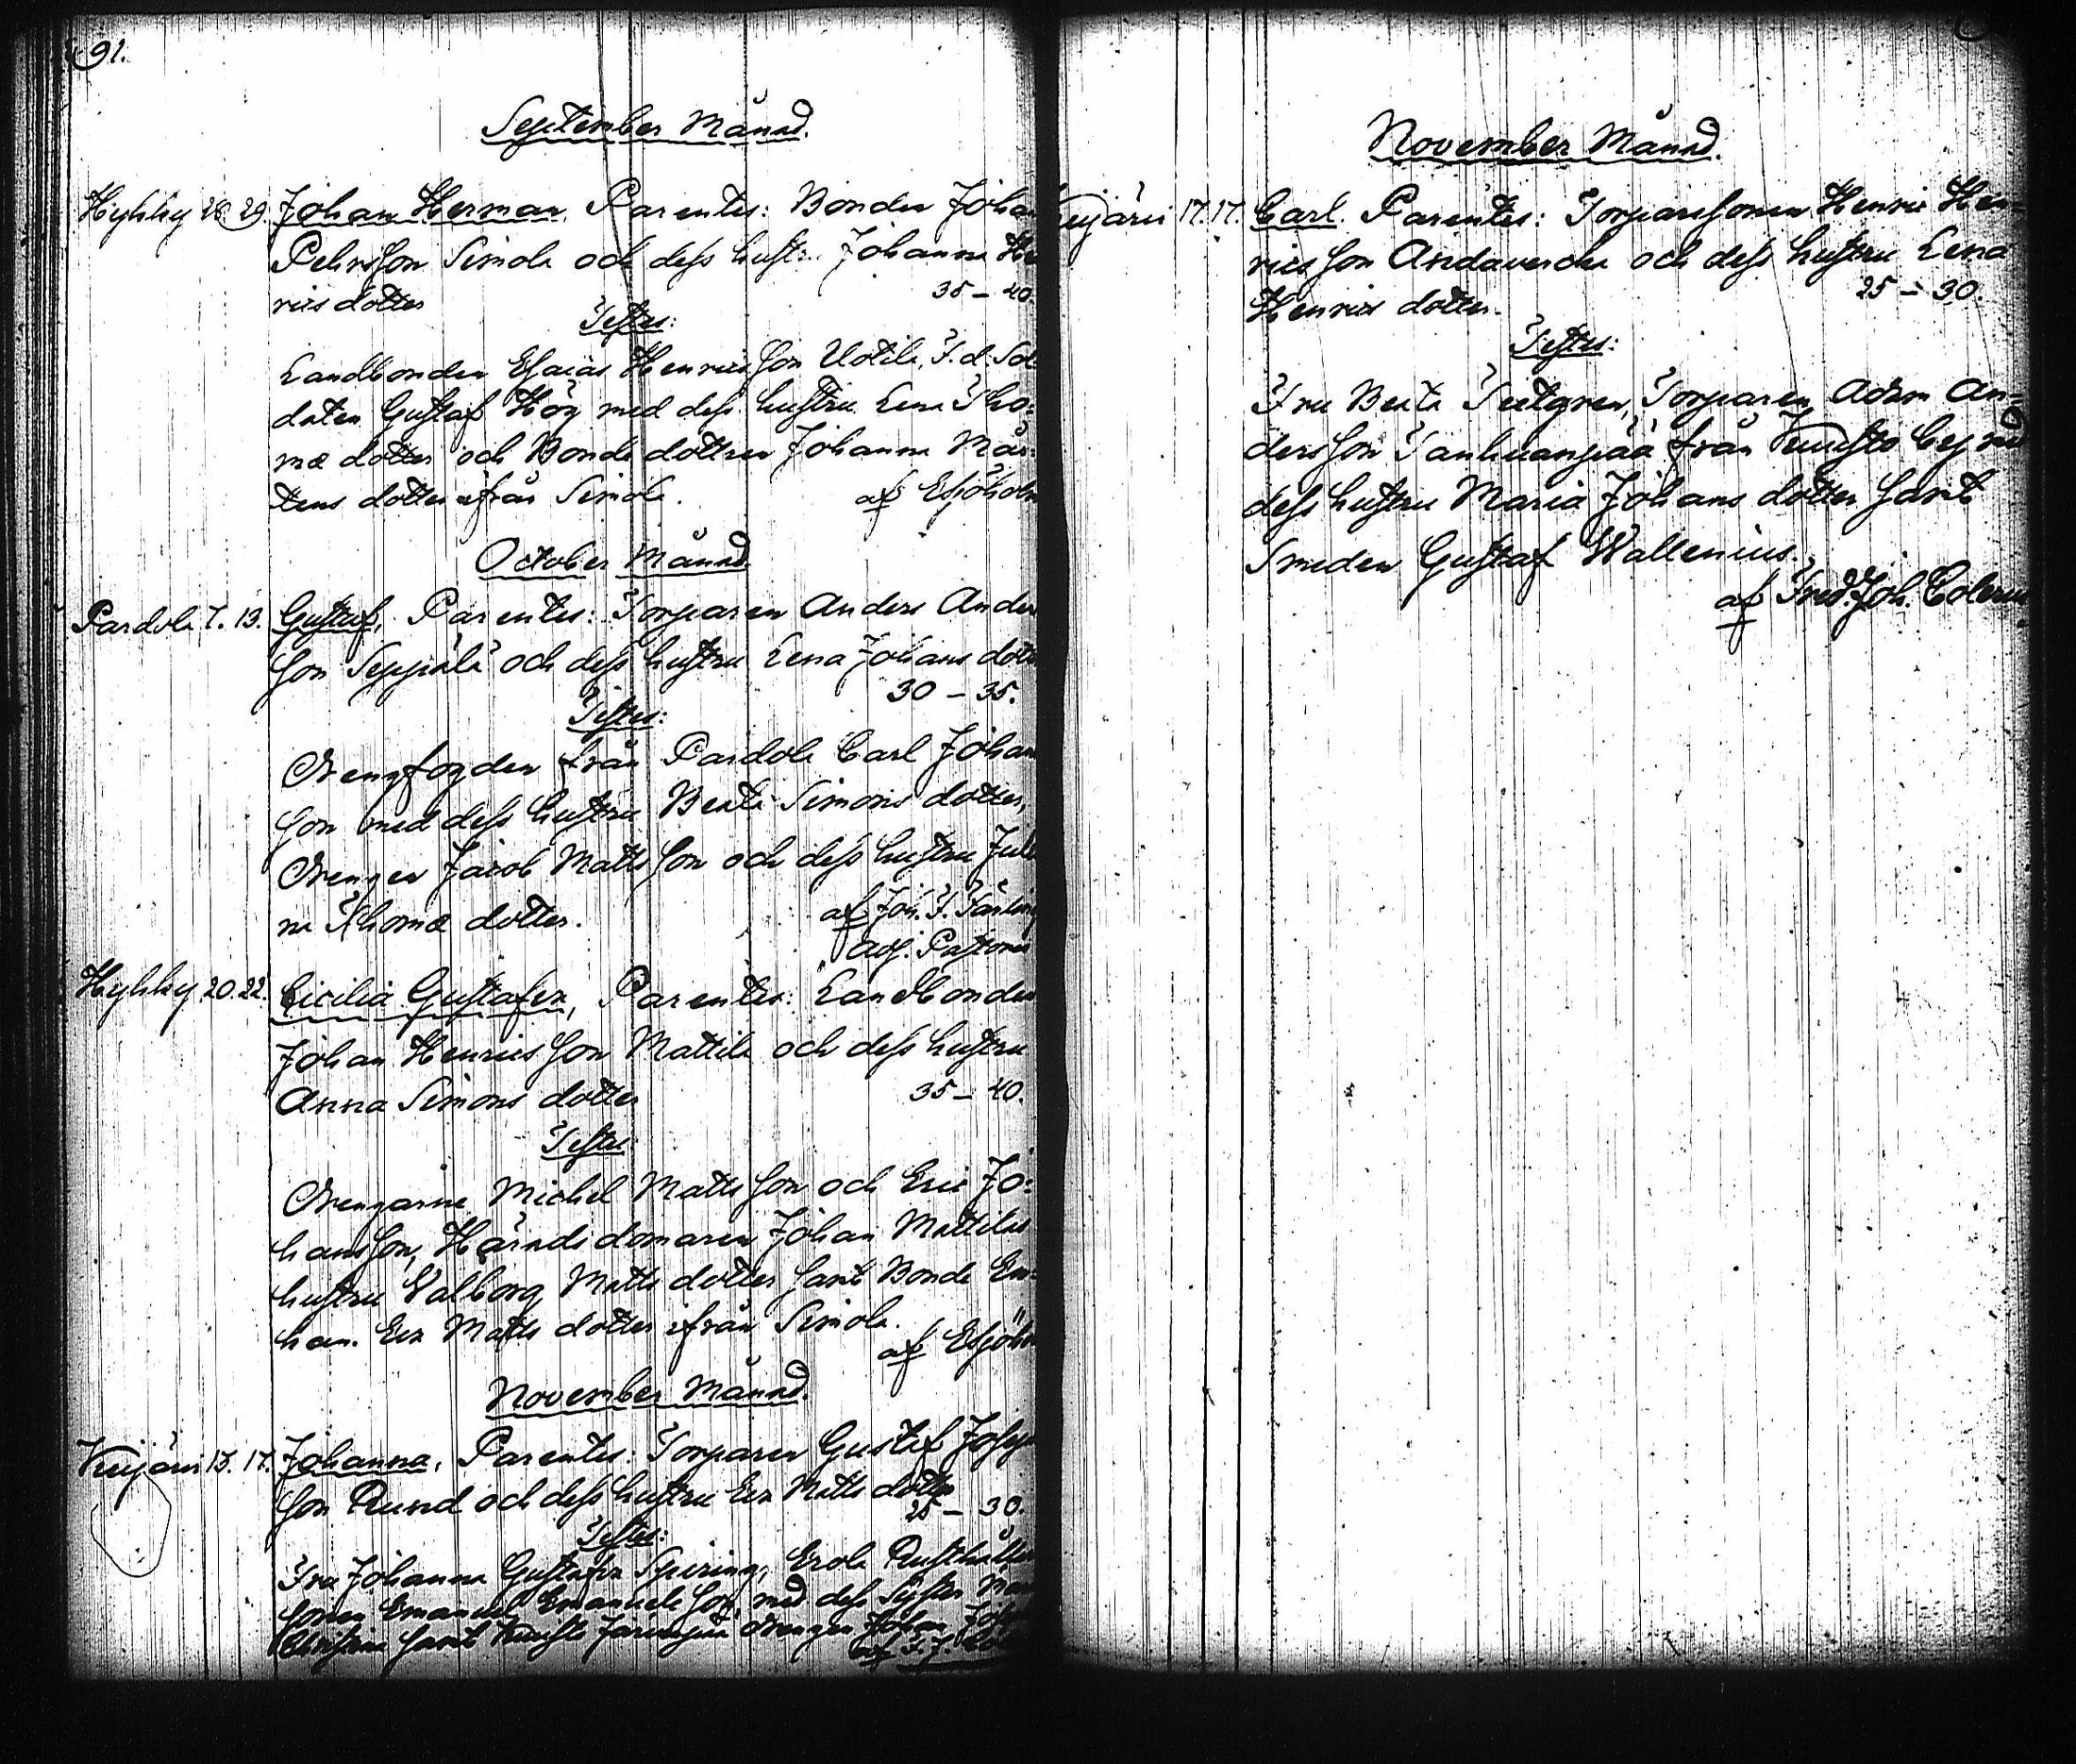 91.
September Månad.
Hyhky 28. 29. Johan Herman. Parentes: Bonden Johan
Pehrsson Simola och dess hustru Johanna He
rics dotter 35 – 40.
Testes:
Landbonden Esaias Henricsson Uotila, F. d. Sol-
daten Gustaf Hög med dess hustru Lena Tho-
mæ dotter och Bonde dottren Johanna Mår-
tens dotter ifrån Simola. af Esjöholm
October Månad.
Pardola 7. 13. Gustaf, Parentes: Torparen Anders Anders
son Seppälä och dess hustru Lena Johans dotter
30 – 35.
Testes:
Drengfogden från Pardola Carl Johan
son med dess hustru Beata Simons dotter,
Drengen Jacob Mattsson och dess hustru
na Thomæ dotter. af Joh. F.
adj. Pastoris
Hyhky 20. 22. Cicilia Gustafva, Parentes: Landbonden
Johan Henricsson Mattila och dess hustru
Anna Simons dotter 35 – 40.
Testes:
Drengarne Michel Mattsson och Eric Jo-
hansson, Häradsdomaren Johan Mattilas
hustru Valborg Matts dotter samt Bonde En-
kan. Eva Matts dotter ifrån Simola.
af Esjöholm
November Månad.
Kuijärvi 15. 17. Johanna, Parentes: Torparen Gustaf Joseps
son Rund och dess hustru Eva Matts dotter
25 – 30.
Testes:
Fru Johanna Gustafva Spiring, Erola Rusthållare
sonen Emanuel Emanuelsson, med dess Syster
Christina samt drengen Johan
af F. J.
November Månad.
Kuijärvi 17. 17. Carl. Parentes: Torparesonen Henric Hen-
ricsson Andavercka och dess hustru Lena
Henrics dotter. 25 – 30.
Testes:
Fru Beata Teetgren, Torparen Adam An-
dersson Tanhuanpää från Kuusto by med
dess hustru Maria Johans dotter samt
Smeden Gustaf Wallenius.
af Fred. Joh. Colerus